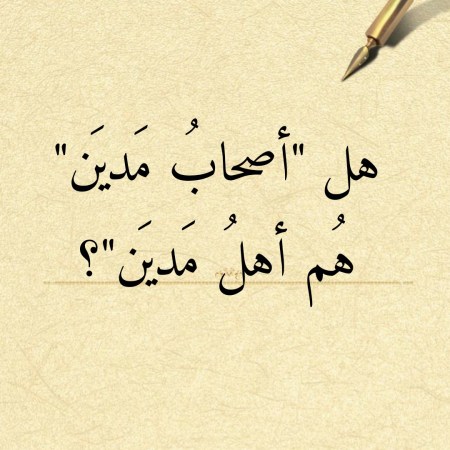 هل "أصحابُ مَديَن"
هُم أهلُ مَديَن"؟